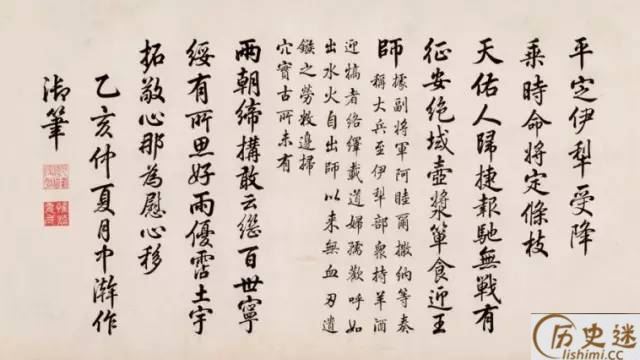 平定伊犁受降
乘時命將定條枝
天佑人歸捷報馳無戰有
征安絕域壺漿簞食迎王
師
據副將軍阿睦爾撒納等奏
稱大兵至伊犁部衆持羊酒
迎犒者絡繹載道婦孺歡呼如
出水火自出師以來無血刃遺
鏃之勞敉邊掃
穴實古所未有
兩朝締搆敢云繼百世寧
綏有所思好雨優霑土宇
拓敬心那為慰心移
乙亥仲夏月中澣作
御筆
历史迷
lishimi.cc